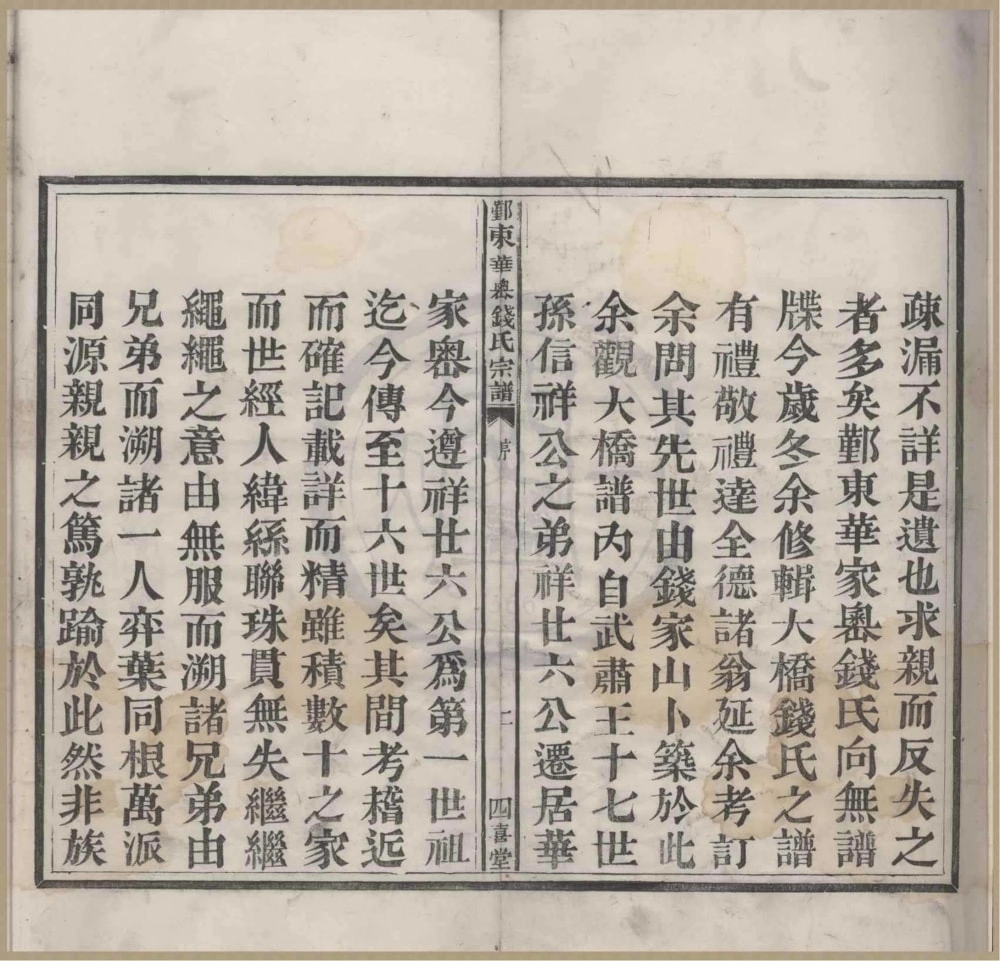 疎漏不詳是遺也求親而反失之
者多矣鄞東華家嶴錢氏向無譜
牒今歲冬余修輯大橋錢氏之譜
有禮敬禮達全德諸翁延余考訂
余問其先世由錢家山卜築於此
余觀大橋譜內自武肅王十七世
孫信祥公之弟祥廿六公遷居華
鄞東華嶴錢氏宗譜 序 二 四喜堂
家嶴今遵祥廿六公爲第一世祖
迄今傳至十六世矣其間考稽近
而確記載詳而精雖積數十之家
而世經人緯絲聯珠貫無失繼繼
繩繩之意由無服而溯諸兄弟由
兄弟而溯諸一人弈葉同根萬派
同源親親之篤孰踰於此然非族